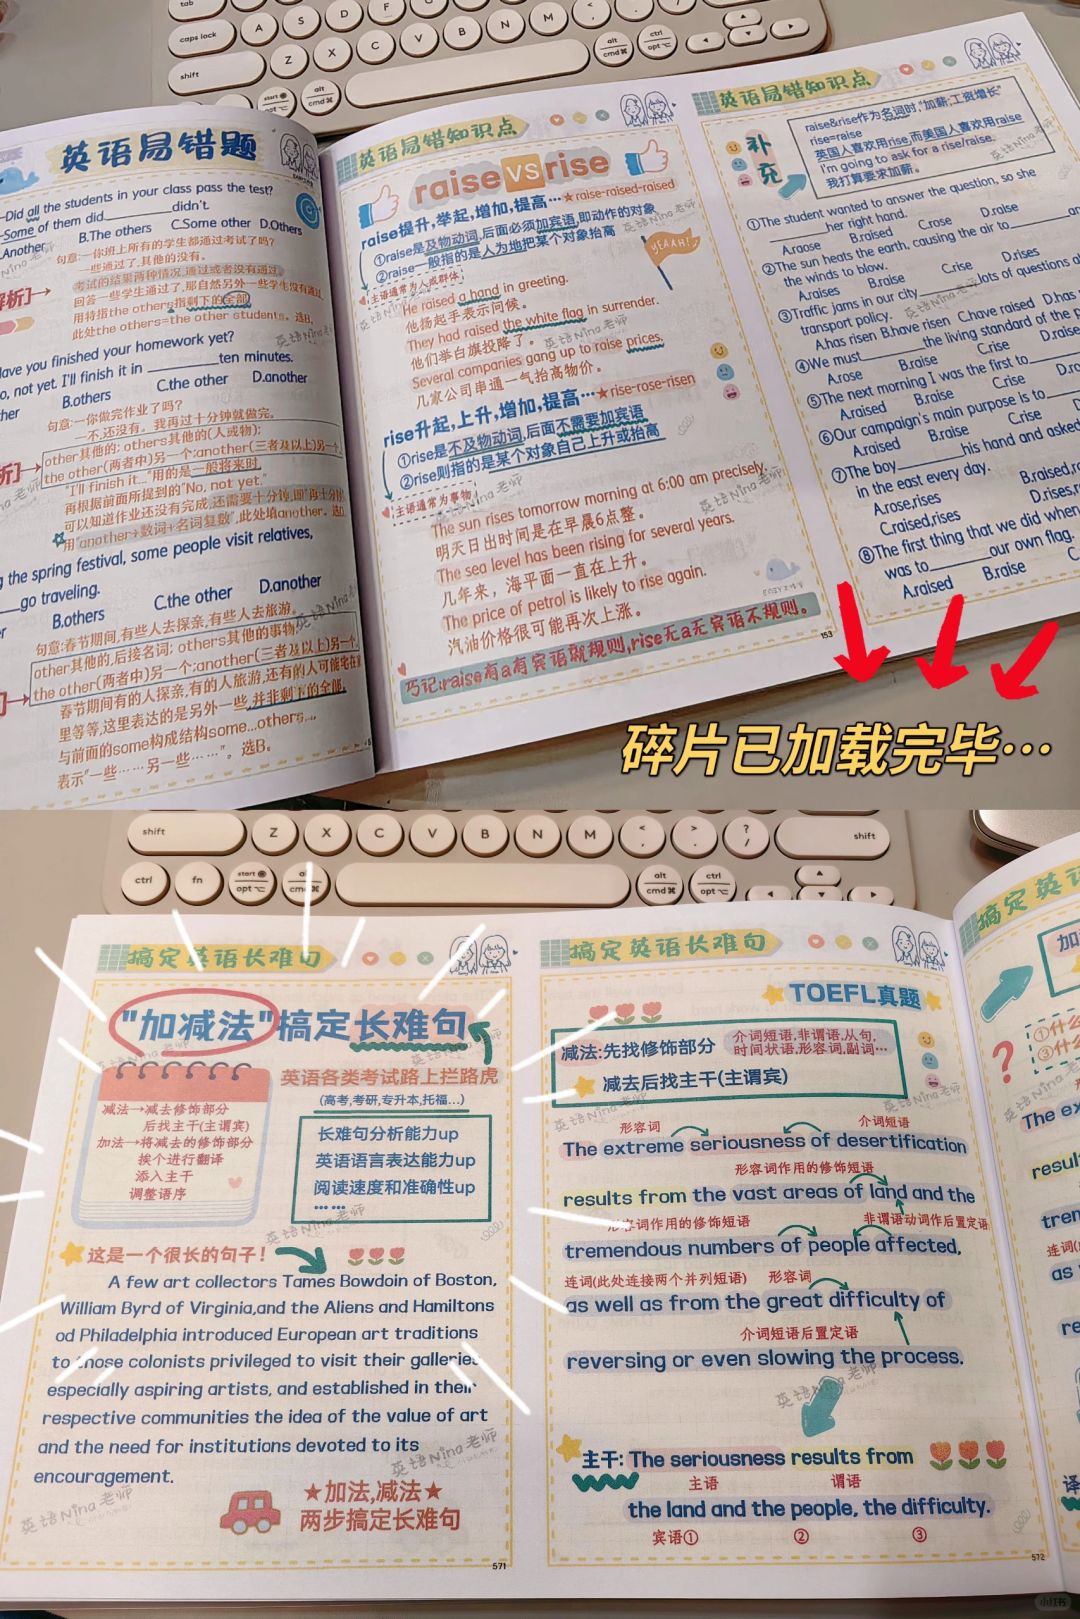 tab
caps lock
A
S
D
F
G
H
J
K
L
shift
Z
X
C
V
B
N
M
start
alt
cmd
alt
cmd
ctrl
opt
英语易错题
—Did all the students in your class pass the test?
—Some of them did,______didn't.
Another
B.The others
C.Some other
D.Others
句意:一你班上所有的学生都通过考试了吗?
一些通过了,其他的没有。
考试的结果两种情况,通过或者没有通过,
回答一些学生通过了,那自然另外一些学生没有通过,
用特指the others,指剩下的全部,
此处the others=the other students。选B。
解析]→
ave you finished your homework yet?
o, not yet. I'll finish it in ______ten minutes.
her
B.others
C.the other
D.another
句意:一你做完作业了吗?
一不,还没有。我再过十分钟就做完。
other其他的; others其他的(人或物);
the other(两者中)另一个;another(三者及以上)另一个,
"I'll finish it..."用的是一般将来时,
再根据前面所提到的"No, not yet."
可以知道作业还没有完成,还需要十分钟,即"再十分钟"
用"another+数词+名词复数",此处填another。选D
析]→
g the spring festival, some people visit relatives,
___go traveling.
r
B.others
C.the other
D.another
句意:春节期间,有些人去探亲,有些人去旅游。
other其他的,后接名词; others其他的事物,
the other(两者中)另一个;another(三者及以上)另一个,
春节期间有的人探亲,有的人旅游,还有的人可能宅在家
里等等,这里表达的是另外一些,并非剩下的全部,
与前面的some构成结构some...others...,
表示"一些……另一些……"。选B。
英语易错知识点
raise VS rise
raise提升,举起,增加,提高…★raise-raised-raised
①raise是及物动词,后面必须加宾语,即动作的对象
②raise一般指的是人为地把某个对象抬高
主语通常为人或群体
YEAAH!
He raised a hand in greeting.
他扬起手表示问候。
They had raised the white flag in surrender.
他们举白旗投降了。
Several companies gang up to raise prices.
几家公司串通一气抬高物价。
rise升起,上升,增加,提高…★rise-rose-risen
①rise是不及物动词,后面不需要加宾语
②rise则指的是某个对象自己上升或抬高
主语通常为事物
The sun rises tomorrow morning at 6:00 am precisely.
明天日出时间是在早晨6点整。
The sea level has been rising for several years.
几年来，海平面一直在上升。
The price of petrol is likely to rise again.
汽油价格很可能再次上涨。
巧记:raise有a有宾语就规则,rise无a无宾语不规则。
153
英语易错知识点
补充
raise&rise作为名词时,"加薪;工资增长"
rise=raise
英国人喜欢用rise,而美国人喜欢用raise
I'm going to ask for a rise/raise.
我打算要求加薪。
①The student wanted to answer the question, so she
______her right hand.
A.raose
B.raised
C.rose
D.raise
②The sun heats the earth, causing the air to______
the winds to blow.
A.raises
B.raise
C.rise
D.rises
③Traffic jams in our city ______lots of questions a
transport policy.
A.has risen B.have risen C.have raised D.has r
④We must______the living standard of the p
A.rose
B.raise
C.rise
D.raise
⑤The next morning I was the first to______
A.raised
B.raise
C.rise
D.ro
⑥Our campaign's main purpose is to______
A.raised
B.raise
C.rise
D
⑦The boy______his hand and asked
in the east every day.
A.rose,rises
B.raised,r
C.raised,rises
D.rises,r
⑧The first thing that we did when
was to______our own flag.
A.raised
B.raise
C
碎片已加载完毕…
shift
Z
X
C
V
B
N
M
shift
ctrl
fn
start
opt
alt
cmd
alt
cmd
ctrl
opt
搞定英语长难句
"加减法"搞定长难句
减法→减去修饰部分
后找主干(主谓宾)
加法→将减去的修饰部分
挨个进行翻译
添入主干
调整语序
英语各类考试路上拦路虎
(高考,考研,专升本,托福...)
长难句分析能力up
英语语言表达能力up
阅读速度和准确性up
……
这是一个很长的句子!
A few art collectors Tames Bowdoin of Boston,
William Byrd of Virginia,and the Aliens and Hamiltons
od Philadelphia introduced European art traditions
to those colonists privileged to visit their galleries,
especially aspiring artists, and established in their
respective communities the idea of the value of art
and the need for institutions devoted to its
encouragement.
★加法,减法★
两步搞定长难句
英语Nina老师
571
搞定英语长难句
TOEFL真题
减法:先找修饰部分
介词短语,非谓语,从句,
时间状语,形容词,副词…
减去后找主干(主谓宾)
形容词
介词短语
The extreme seriousness of desertification
形容词作用的修饰短语
results from the vast areas of land and the
形容词作用的修饰短语
非谓语动词作后置定语
tremendous numbers of people affected,
连词(此处连接两个并列短语)
形容词
as well as from the great difficulty of
介词短语后置定语
reversing or even slowing the process.
英语Nina老师
主干: The seriousness results from
主语
谓语
the land and the people, the difficulty.
宾语①
②
③
572
搞定英语
加
①什么
③什么
?
The ex
resul
trem
连词(
as
re
re
Th
译
小红书